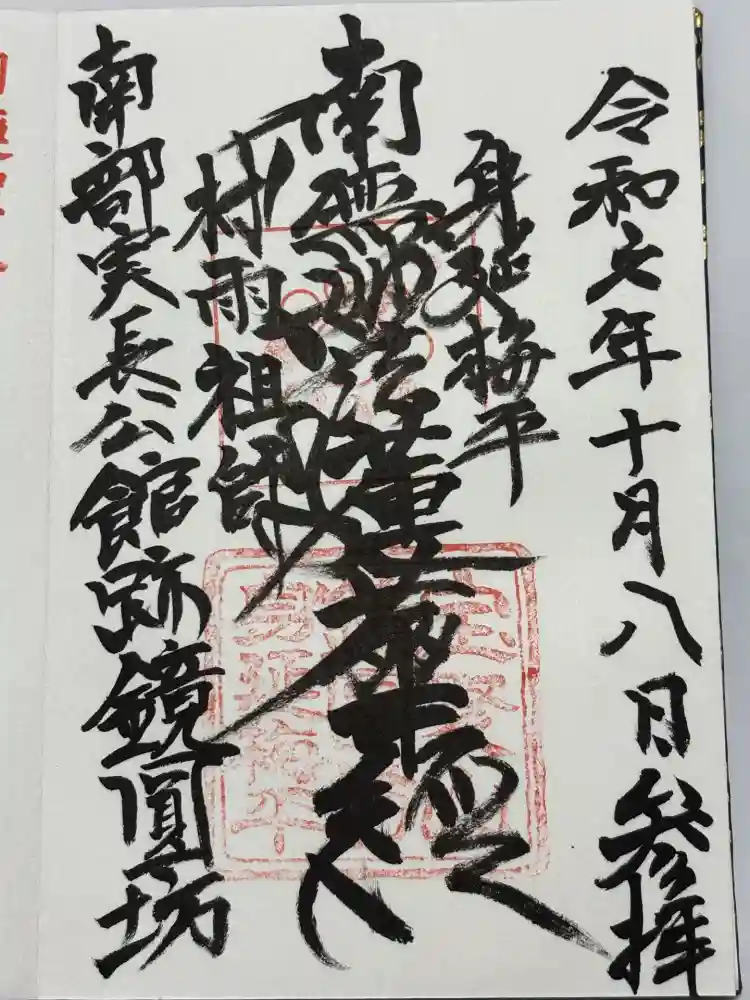 令和元年十月八日参拝
身延梅平
南無妙法蓮華経
村雨祖師
南部実長公館跡鏡圓坊
身延梅平